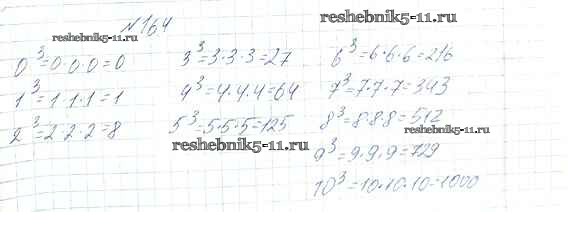 № 164
reshebnik5-11.ru
reshebnik5-11.ru
0³=0·0·0=0
1³=1·1·1=1
2³=2·2·2=8
3³=3·3·3=27
4³=4·4·4=64
5³=5·5·5=125
reshebnik5-11.ru
6³=6·6·6=216
7³=7·7·7=343
8³=8·8·8=512
reshebnik5-11.ru
9³=9·9·9=729
10³=10·10·10=1000